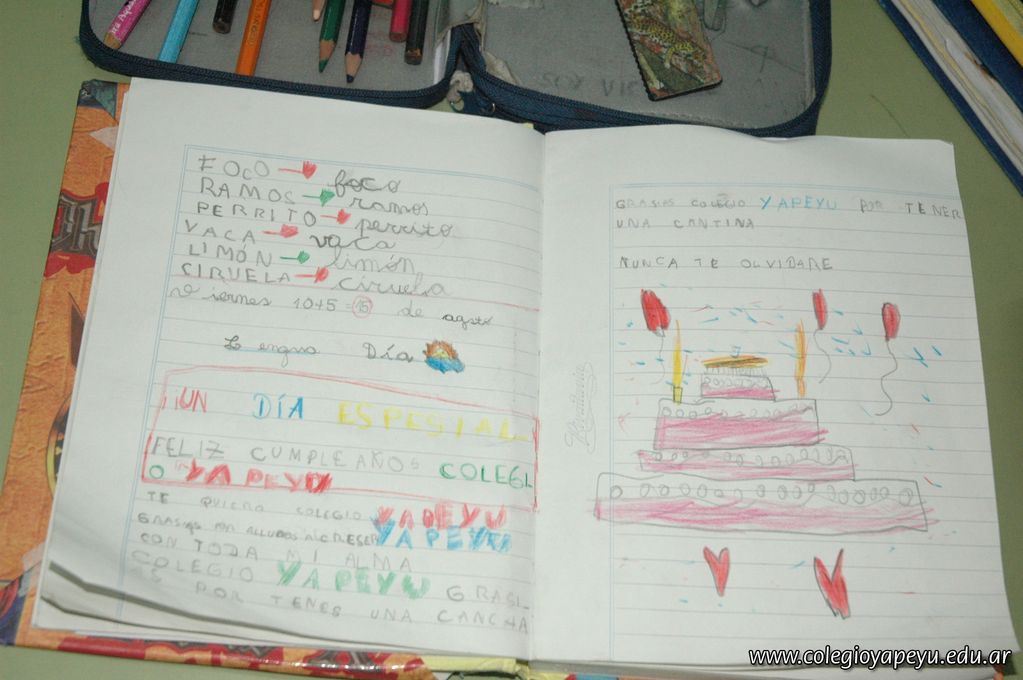 FOCO → foco
RAMOS → ramos
PERRITO → perrito
VACA → vaca
LIMÓN → limón
SIRUELA → ciruela
Viernes 10+5=15 de agosto
Lengua Día
¡¡UN DÍA ESPESIAL
FELIZ CUMPLEAÑOS COLEGI
O YAPEYU
TE QUIERO COLEGIO YAPEYU
GRASIAS POR ALLUDAS A CRESER YAPEYU
CON TODA MI ALMA
COLEGIO YAPEYU GRASI
AS POR TENES UNA CANCHA
GRASIAS COLEGIO YAPEYU POR TENER
UNA CANTINA
NUNCA TE OLVIDARE
Rivadavia
www.colegioyapeyu.edu.ar